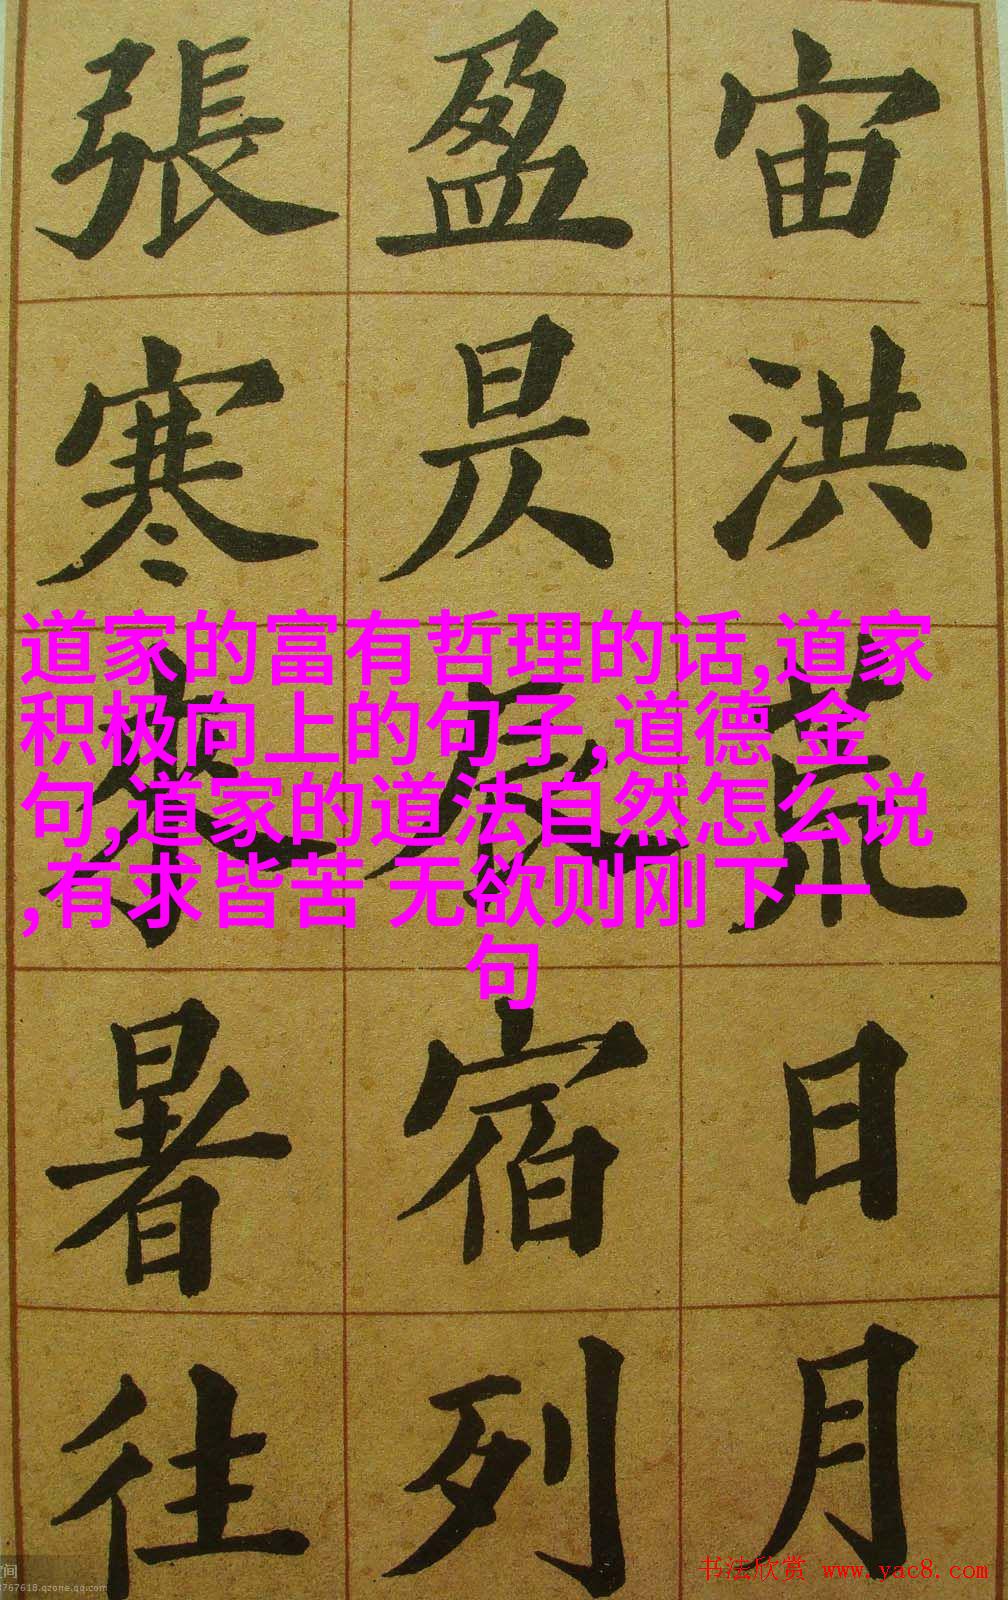 宙洪荒日月
盈昃辰宿列
張寒來暑往
道家的富有哲理的话,道家
积极向上的句子,道德 金
句,道家的道法自然怎么说
,有求皆苦 无欲则刚下一
句
书法欣赏 www.yac8.com
间
767618.qzone.qq.com